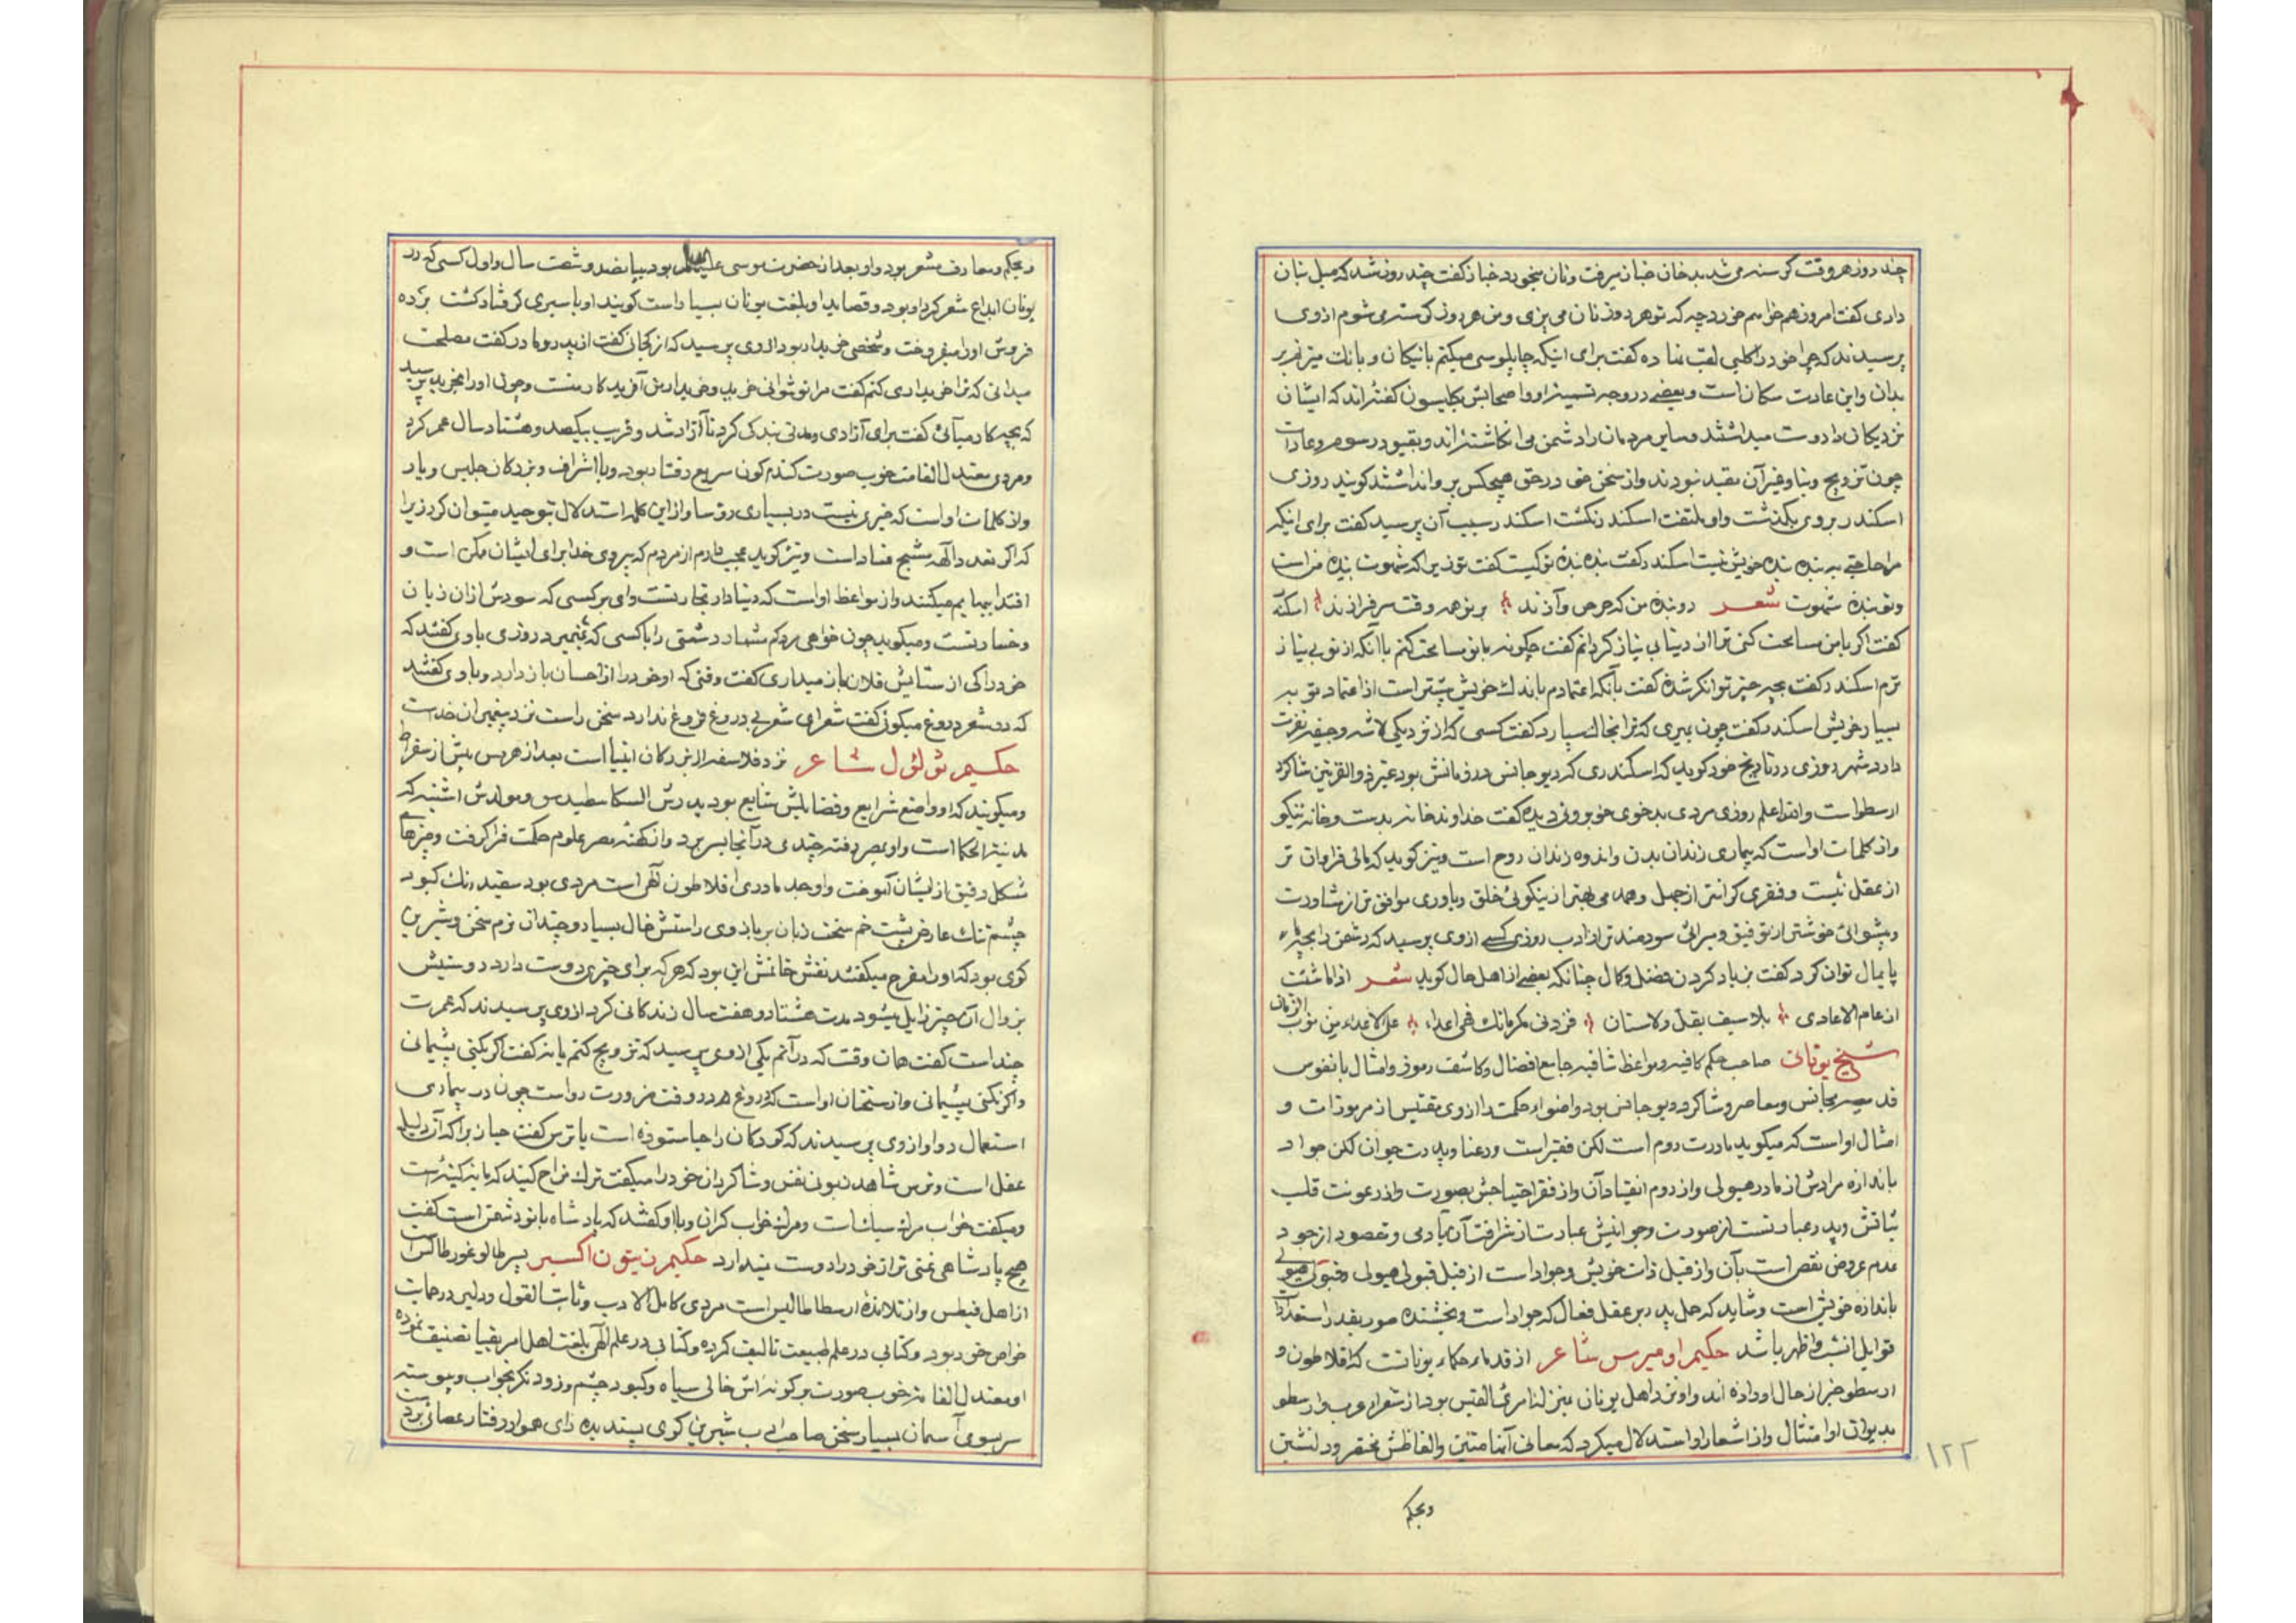 چند روز هر وقت گرسنه می شد بدخان خباز میرفت و نان میخورد خباز گفت چند روز شد که میل بنان
داری گفت امروز هم خواهم خورد چه که تو هر روز نان می پزی و من هر روز گرسنه می شوم از وی
پرسیدند که چرا خود را کلبی لقب نهاده گفت برای اینکه چاپلوسی میکنم با نیکان و بانک میزنم بر
بدان و این عادت سکان است و بعضی در وجه تسمیه او و اصحابش بکلبیون گفته اند که ایشان
نزدیکان را دوست میداشتند و سایر مردمان را دشمن می انکاشته اند و بقیود رسوم و عادات
چون تزویج و بنا و غیر آن مقید نبودند و از سخن حق در حق هیچکس پروا نداشتند کویند روزی
اسکندر بر وی بگذشت و او ملتفت اسکندر نکشت اسکندر سبب آن پرسید گفت برای اینکه
مرا حاجتی به بنده بنده خویش نیست اسکندر گفت بنده بنده تو کیست گفت تو زیرا که شهوت بنده من است
و تو بنده شهوت شعر دو بنده من که حرص و آزند بر تو همه وقت سرفرازند اسکندر
گفت اگر با من مسامحت کنی ترا از دنیا بی نیاز کردانم گفت چکونه با تو مسامحت کنم با آنکه از تو بی نیاز
ترم اسکندر گفت بچه چیز توانگر شدهٔ گفت بآنکه اعتمادم باندک خویش بیشتر است از اعتماد تو به
بسیار خویش اسکندر گفت چون بمیری که ترا بخاک سپارد گفت کسی که از نزدیکی لاشه و جیفه نفرت
دارد شهرزوری در تاریخ خود کوید که اسکندری که دیوجانس در زمانش بود غیر ذو القرنین شاکرد
ارسطو است و الله اعلم روزی مردی بدخوی خوبروئی دیده گفت خداوند خانه بدست و خانه نیکو
و از کلمات او است که بیماری زندان بدن و اندوه زندان روح است و نیز کوید که مالی فراوان تر
از عقل نیست و فقری کرانتر از جهل و همدمی بهتر از نیکوئی خلق و یاوری موافق تر از مشاورت
و پیشوائی خوشتر از توفیق و میراثی سودمند تر از ادب روزی کسی از وی پرسید که دشمن را بچه
پایمال توان کرد گفت بزیاد کردن فضل و کمال چنانکه بعضی از اهل حال کوید شعر اذا ما شئت
ارغام الاعادی بلا سیف یقل ولا سنان فزد فی مکرماتک فهی اعداء علی الاعداء من نوب الزمان
شیخ یونانی صاحب حکم کافیه و مواعظ شافیه جامع افضال و کاشف رموز و امثال با نفوس
قدسیه مجانس و معاصر و شاکرد دیوجانس بود و اضواء حکمت را از وی مقتبس از مرموزات و
امثال او است که میکوید مادرت روم است لکن فقیر است و رعنا و پدرت جوان لکن جواد
باندازه مرادش از مادر هیولی و از روم انقیاد آن و از فقر احتیاجش بصورت و از رعونت قلت
ثباتش و پدر عبارتست از صورت و جوانیش عبارت از شرافت آن بادمی و مقصود از جود
عدم عروض نقص است بآن و از قبل ذات خویش و جواد است از قبل قبولی هیولی و قبول هیولی
باندازه خویش است و شاید که حمل پدر بر عقل فعال که جواد است و بخشنده صور بقدر استعداد
قوابل انسب و اظهر باشد حکیم اومیرس شاعر از قدماء حکماء یونانست که افلاطون و
ارسطو خبر از حال او داده اند و او نزد اهل یونان بمنزله امرئ القیس بود از شعراء عرب و ارسطو
بدیوان او امتثال و از اشعار او استدلال میکرد که معانی آنها متین و الفاظش مختصر و دلنشین
وبحکم
۱۲۲
وبحکم و معارف مشعر بود و او بعد از حضرت موسی علیه السلام بود بپانصد و شصت سال و اول کسی که در
یونان ابداع شعر کرد او بود و قصاید او بلغت یونان بسیار است کویند او باسیری گرفتار کشت برده
فروش او را میفروخت و شخصی خریدار بود از وی پرسید که از کجائی گفت از پدر و مادر گفت مصلحت
میدانی که ترا خریداری کنم گفت مرا تو نتوانی خرید و خریدار من آفریدکار منست و چون او را بخرید پرسید
که بچه کار میآئی گفت برای آزادی و مدتی بندکی کرد تا آزاد شد و قریب بیکصد و هشتاد سال عمر کرد
و مردی معتدل القامت خوب صورت کندم کون سریع رفتار بوده و با اشراف و بزرکان جلیس و یار
و از کلمات او است که خیری نیست در بسیاری رؤسا و از این کلمه استدلال بتوحید میتوان کرد زیرا
که اگر تعدد آلهه منتج فساد است و نیز کوید عجب دارم از مردم که پیروی خدا برای ایشان ممکن است و
اقتدا ببهایم میکنند و از مواعظ او است که دنیا دار تجارتست وای بر کسی که سودش از آن زیان
و خسارتست و میکوید چون خواهی مردم شمارد دشمن را با کسی که روزی با وی گفتند که
خود را کی از ستایش فلان باز میداری گفت وقتی که او خود را از احسان باز دارد و با وی گفتند
که در شعر دروغ میکوئی گفت شعرای شعر بی دروغ فروغ ندارد سخن راست نزد پیغمبران خداست
حکیم تولئول شاعر نزد فلاسفه از بزرکان انبیا است بعد از هرمس پیش از سقراط
و میکویند که او واضع شرایع و فضایلش شایع بود پدرش السکاسطیدس و مولدش اشنیه که
مدینة الحکما است و او بمصر رفته چندی در آنجا بسر برد و از کهنه مصر علوم حکمت فرا کرفت و چیزهای
شکل رفیق از ایشان آموخت و او جد مادری افلاطون الهی است مردی بود سفید رنک کبود
چشم تنک عارض پشت خم سخت زبان بر بازوی راستش خال بسیار و چندان نرم سخن و شیرین
کوی بود که او را مفرح میکفتند نقش خاتمش این بود که هر که برای چیزی دوست دارد دوستیش
بزوال آن چیز زایل میشود مدت هشتاد و هفت سال زندکانی کرد از وی پرسیدند که عمرت
چند است گفت همان وقت که در آنم یکی از وی پرسید که تزویج کنم یا نه گفت اگر بکنی پشیمانی
و اگر نکنی پشیمانی و از سخنان او است که دروغ در وقت ضرورت رواست چون در بیماری
استعمال دوا و از وی پرسیدند که کودکان را حیا ستوده است یا ترس گفت حیا زیرا که آن دلیل
عقل است و ترس شاهد زبونی نفس و شاکردان خود را میکفت ترک مزاح کنید که مایه کینه است
و میکفت خواب مرک سبک است و مرک خواب کران و با او کفتند که پادشاه با تو دشمن است گفت
هیچ پادشاهی غنی تر از خود را دوست نمیدارد حکیم زیتون اکبر پسر طالوغور طاکس است
از اهل قیطس و از تلامذه ارسطاطالیس است مردی کامل الادب و ثابت القول و دلیر در حمایت
خواص خود بود و کتابی در علم طبیعت تالیف کرده و کتابی در علم الهی بلغت اهل امریقیا تصنیف نموده
او معتدل القامه خوب صورت بر کونه اش خالی سیاه و کبود چشم و زود نکر بجواب و پیوسته
سر بسوی آسمان بسیار سخن صائب شیرین کوی پسندیده رای هموار رفتار عصائی بدست